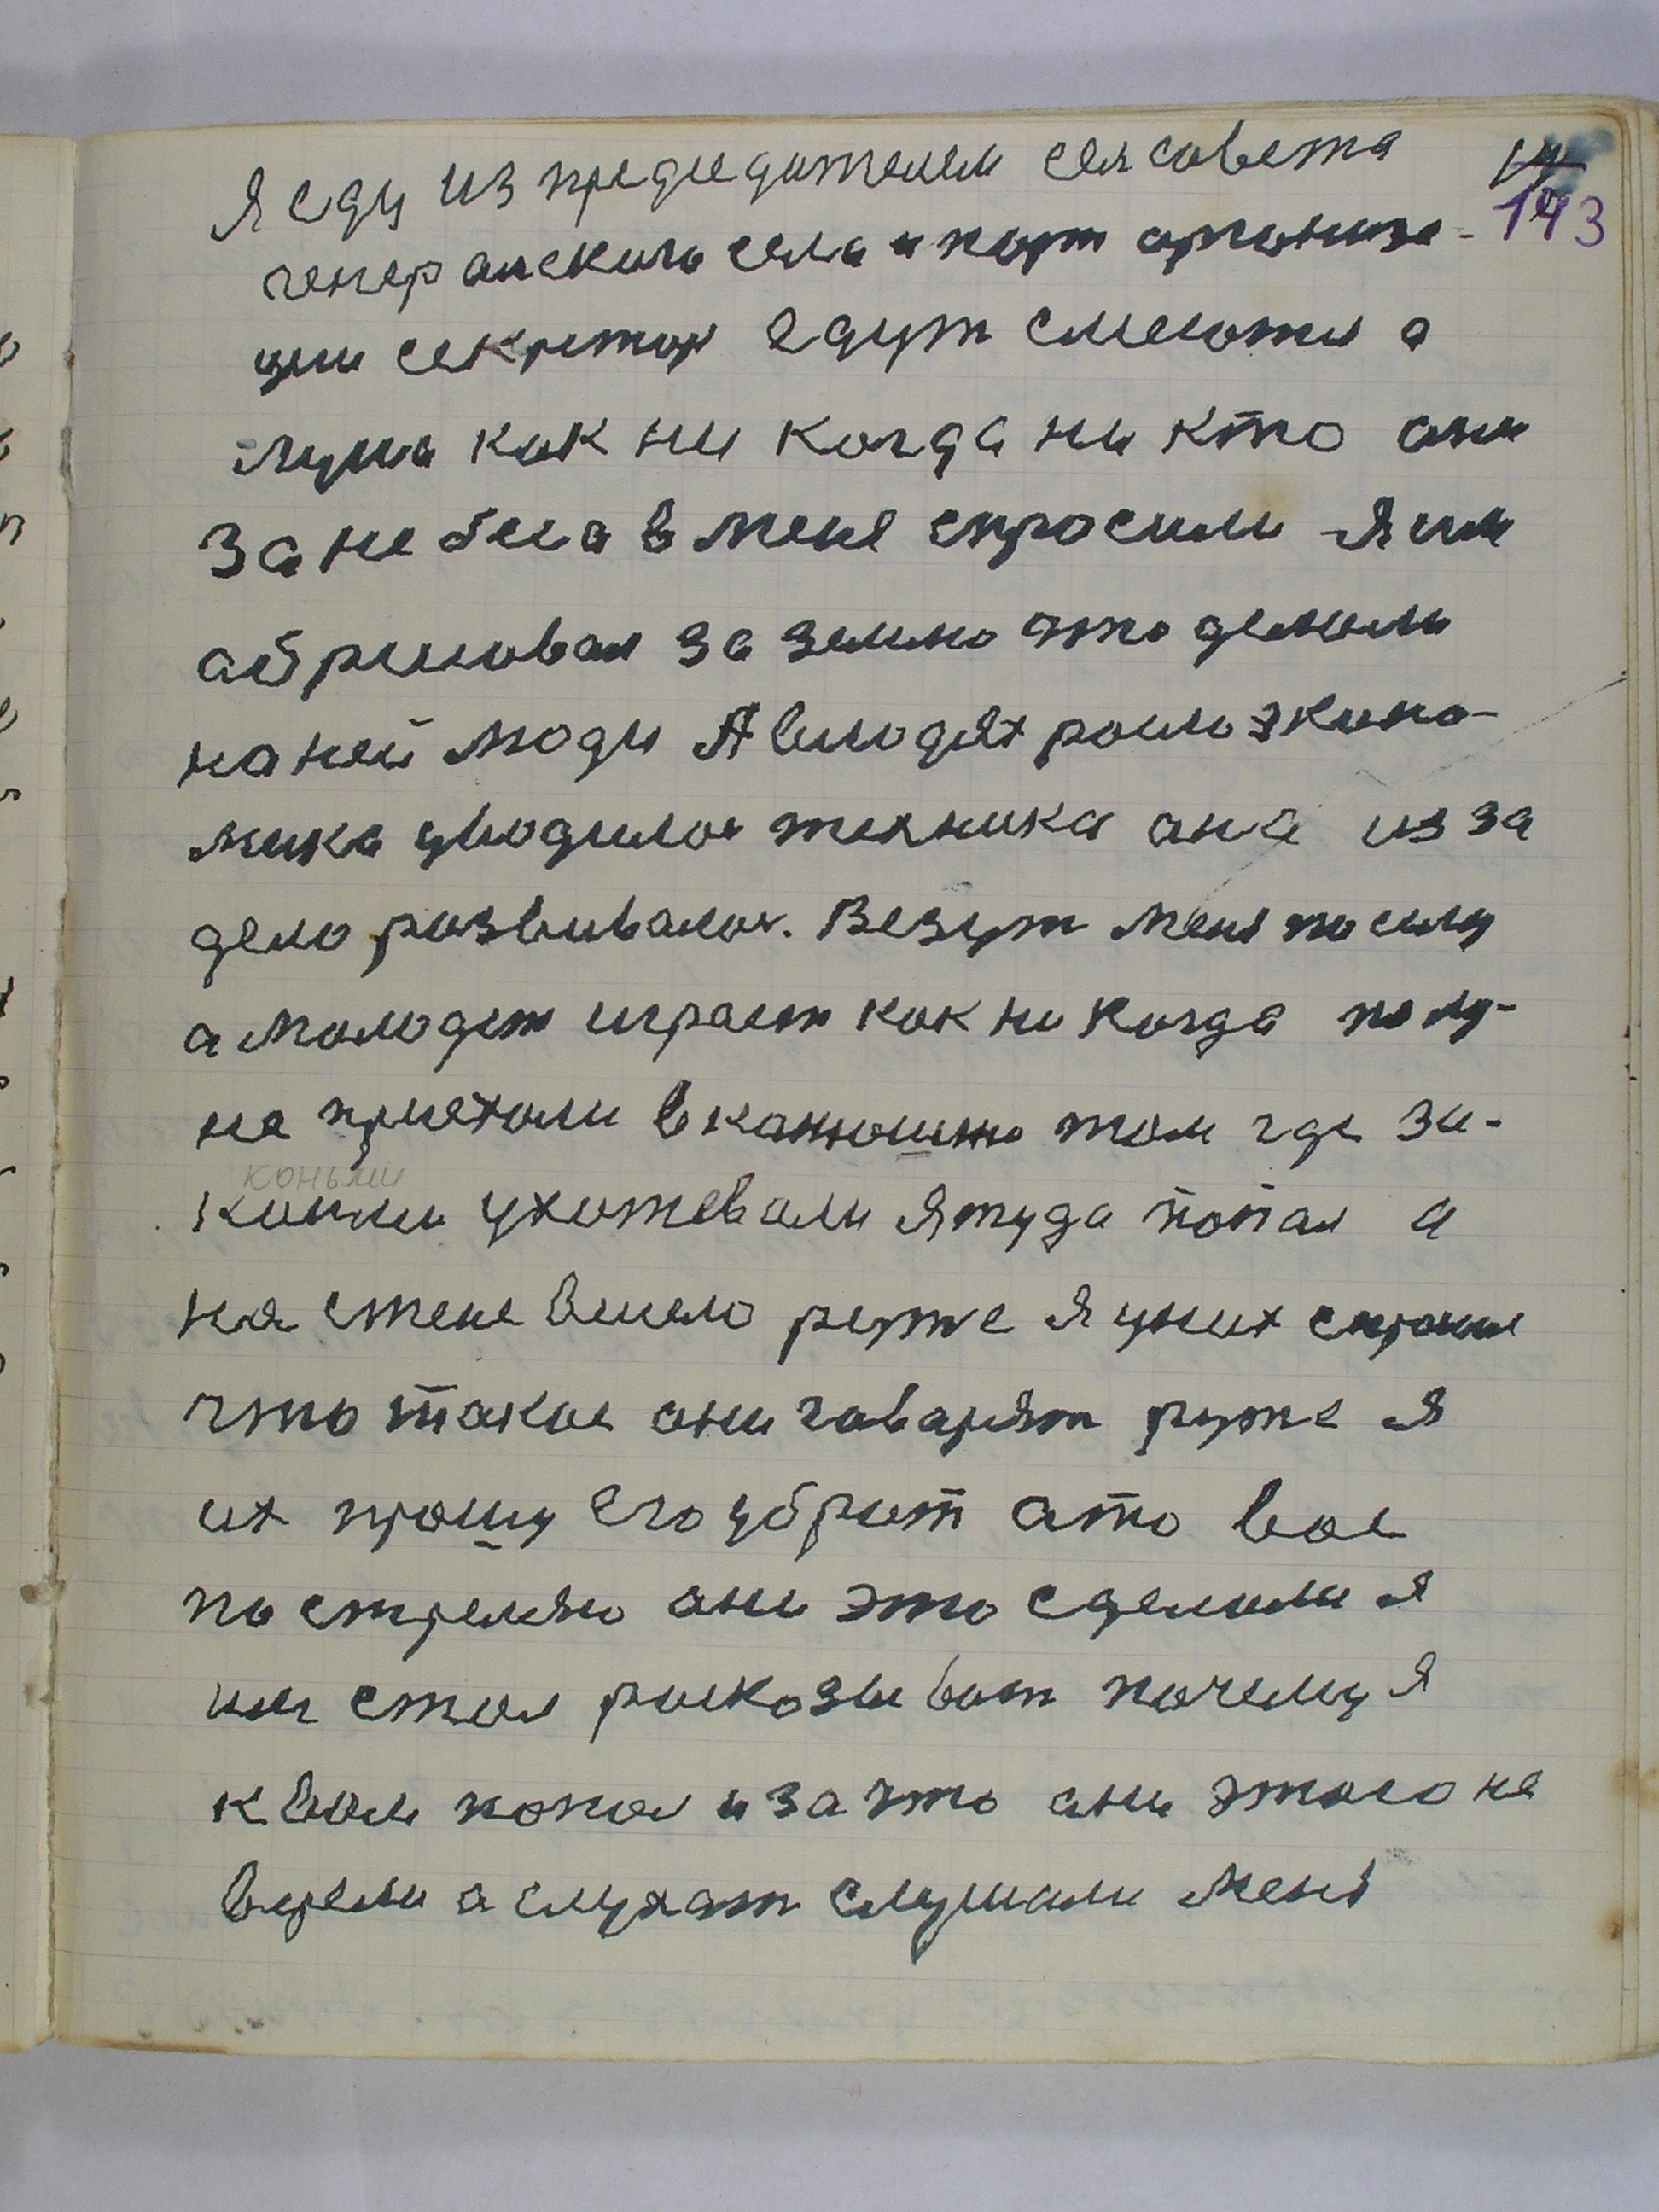 143
Я еду из предцедителем селсовета
генералскиго села и парт арганиза-
ции секретар едут смеютця а
луна как ни когда ни кто ани
За небеса в меня спросили я им
абрисовал за землю што делали
на ней люди А в людях росло экано-
мика уводилос техника
дело развивалос. Везут меня по селу
а молодеж играет как ни когда по лу-
не приехали в канюшню там где зи-
коньми
коньми ухажевали я туда попал а
на стене висело ружже я у них спросил
што такое ани гаварят руже я
их прошу его убрат а то вас
по стреляю ани это сделали я
им стал расказыват почему я
к вам попал и за што ани этого не
верели а слухат слушали меня